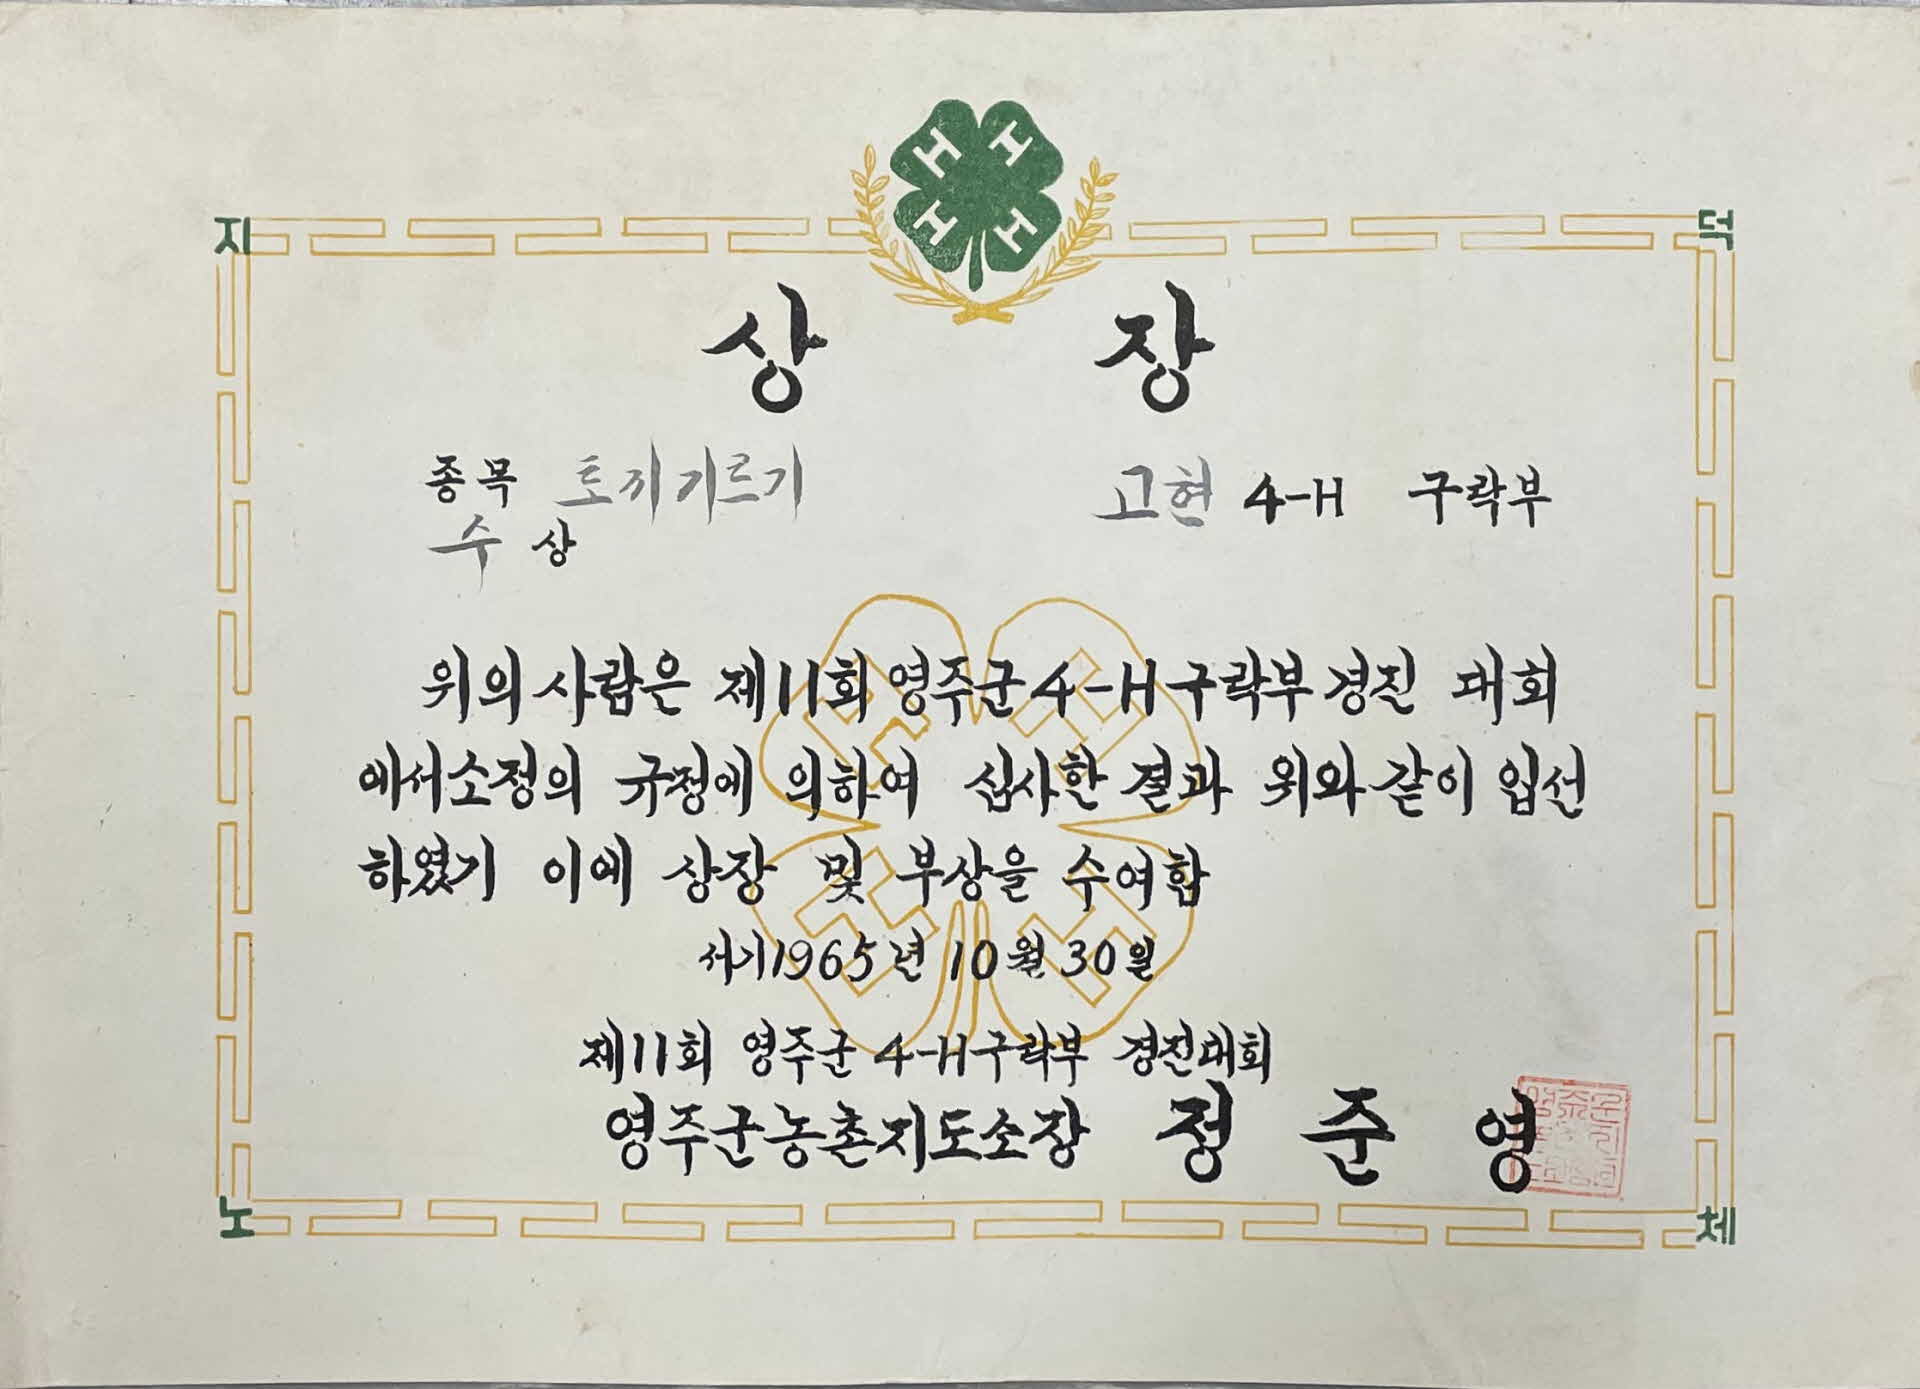 H H
H H
지 덕
상 장
종목 토끼기르기 고현 4-H 구락부
수 상
위의 사람은 제11회 영주군 4-H 구락부 경진 대회
에서 소정의 규정에 의하여 심사한 결과 위와 같이 입선
하였기 이에 상장 및 부상을 수여함
서기 1965년 10월 30일
제11회 영주군 4-H구락부 경진대회
영주군농촌지도소장 정 준 영
노 체